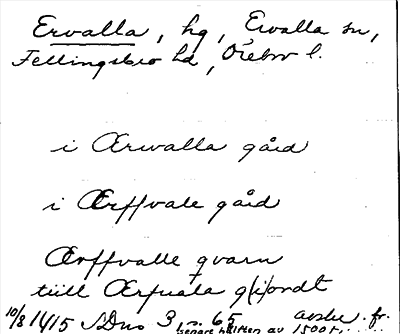 Ervalla, hg, Ervalla sn,
Fellingsbro hd, Örebro l.
i Ærwalla gård
i Ærffvale gård
Ærffvalle qvarn
tiill Ærfuala g(i)ordt
10/8 1415 SDns 3 65 avskr. fr.
senare hälften av 1500 t.